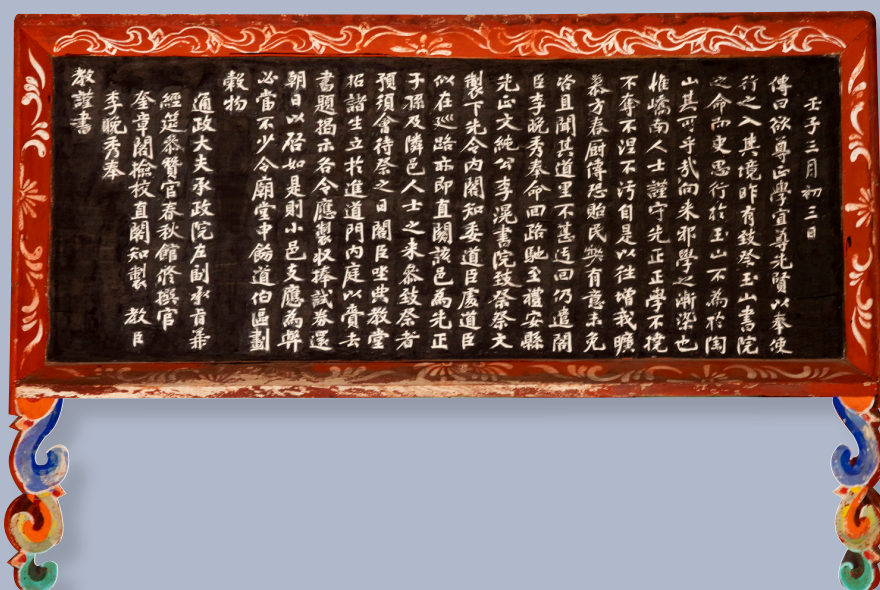 壬子三月初三日
傳曰欲尊正學宜尊先賢以奉使
行之入其境昨有致祭玉山書院
之命而更思行於玉山不為於陶
山其可乎哉向來邪學之漸染也
惟嶠南人士謹守先正正學不撓
不奪不涅不汚自是以往增我曠
慕方春厨傳恐貽民弊有意未免
咨且聞其道里不甚迂回仍遣閣
臣李晚秀奉命回路馳至禮安縣
先正文純公李滉書院致祭祭文
製下先令內閣知委道臣處道臣
似在巡路亦即直關該邑為先正
子孫及隣邑人士之來參致祭者
預須會待祭之日閣臣坐典教堂
招諸生立於進道門內庭以賫去
書題揭示各令應製收捧試券還
朝日以啓如是則小邑支應為弊
必當不少令廟堂申飭道伯區劃
穀物
通政大夫承政院左副承旨兼
經筵參贊官春秋館修撰官
奎章閣檢校直閣知製 教臣
李晚秀奉
教謹書